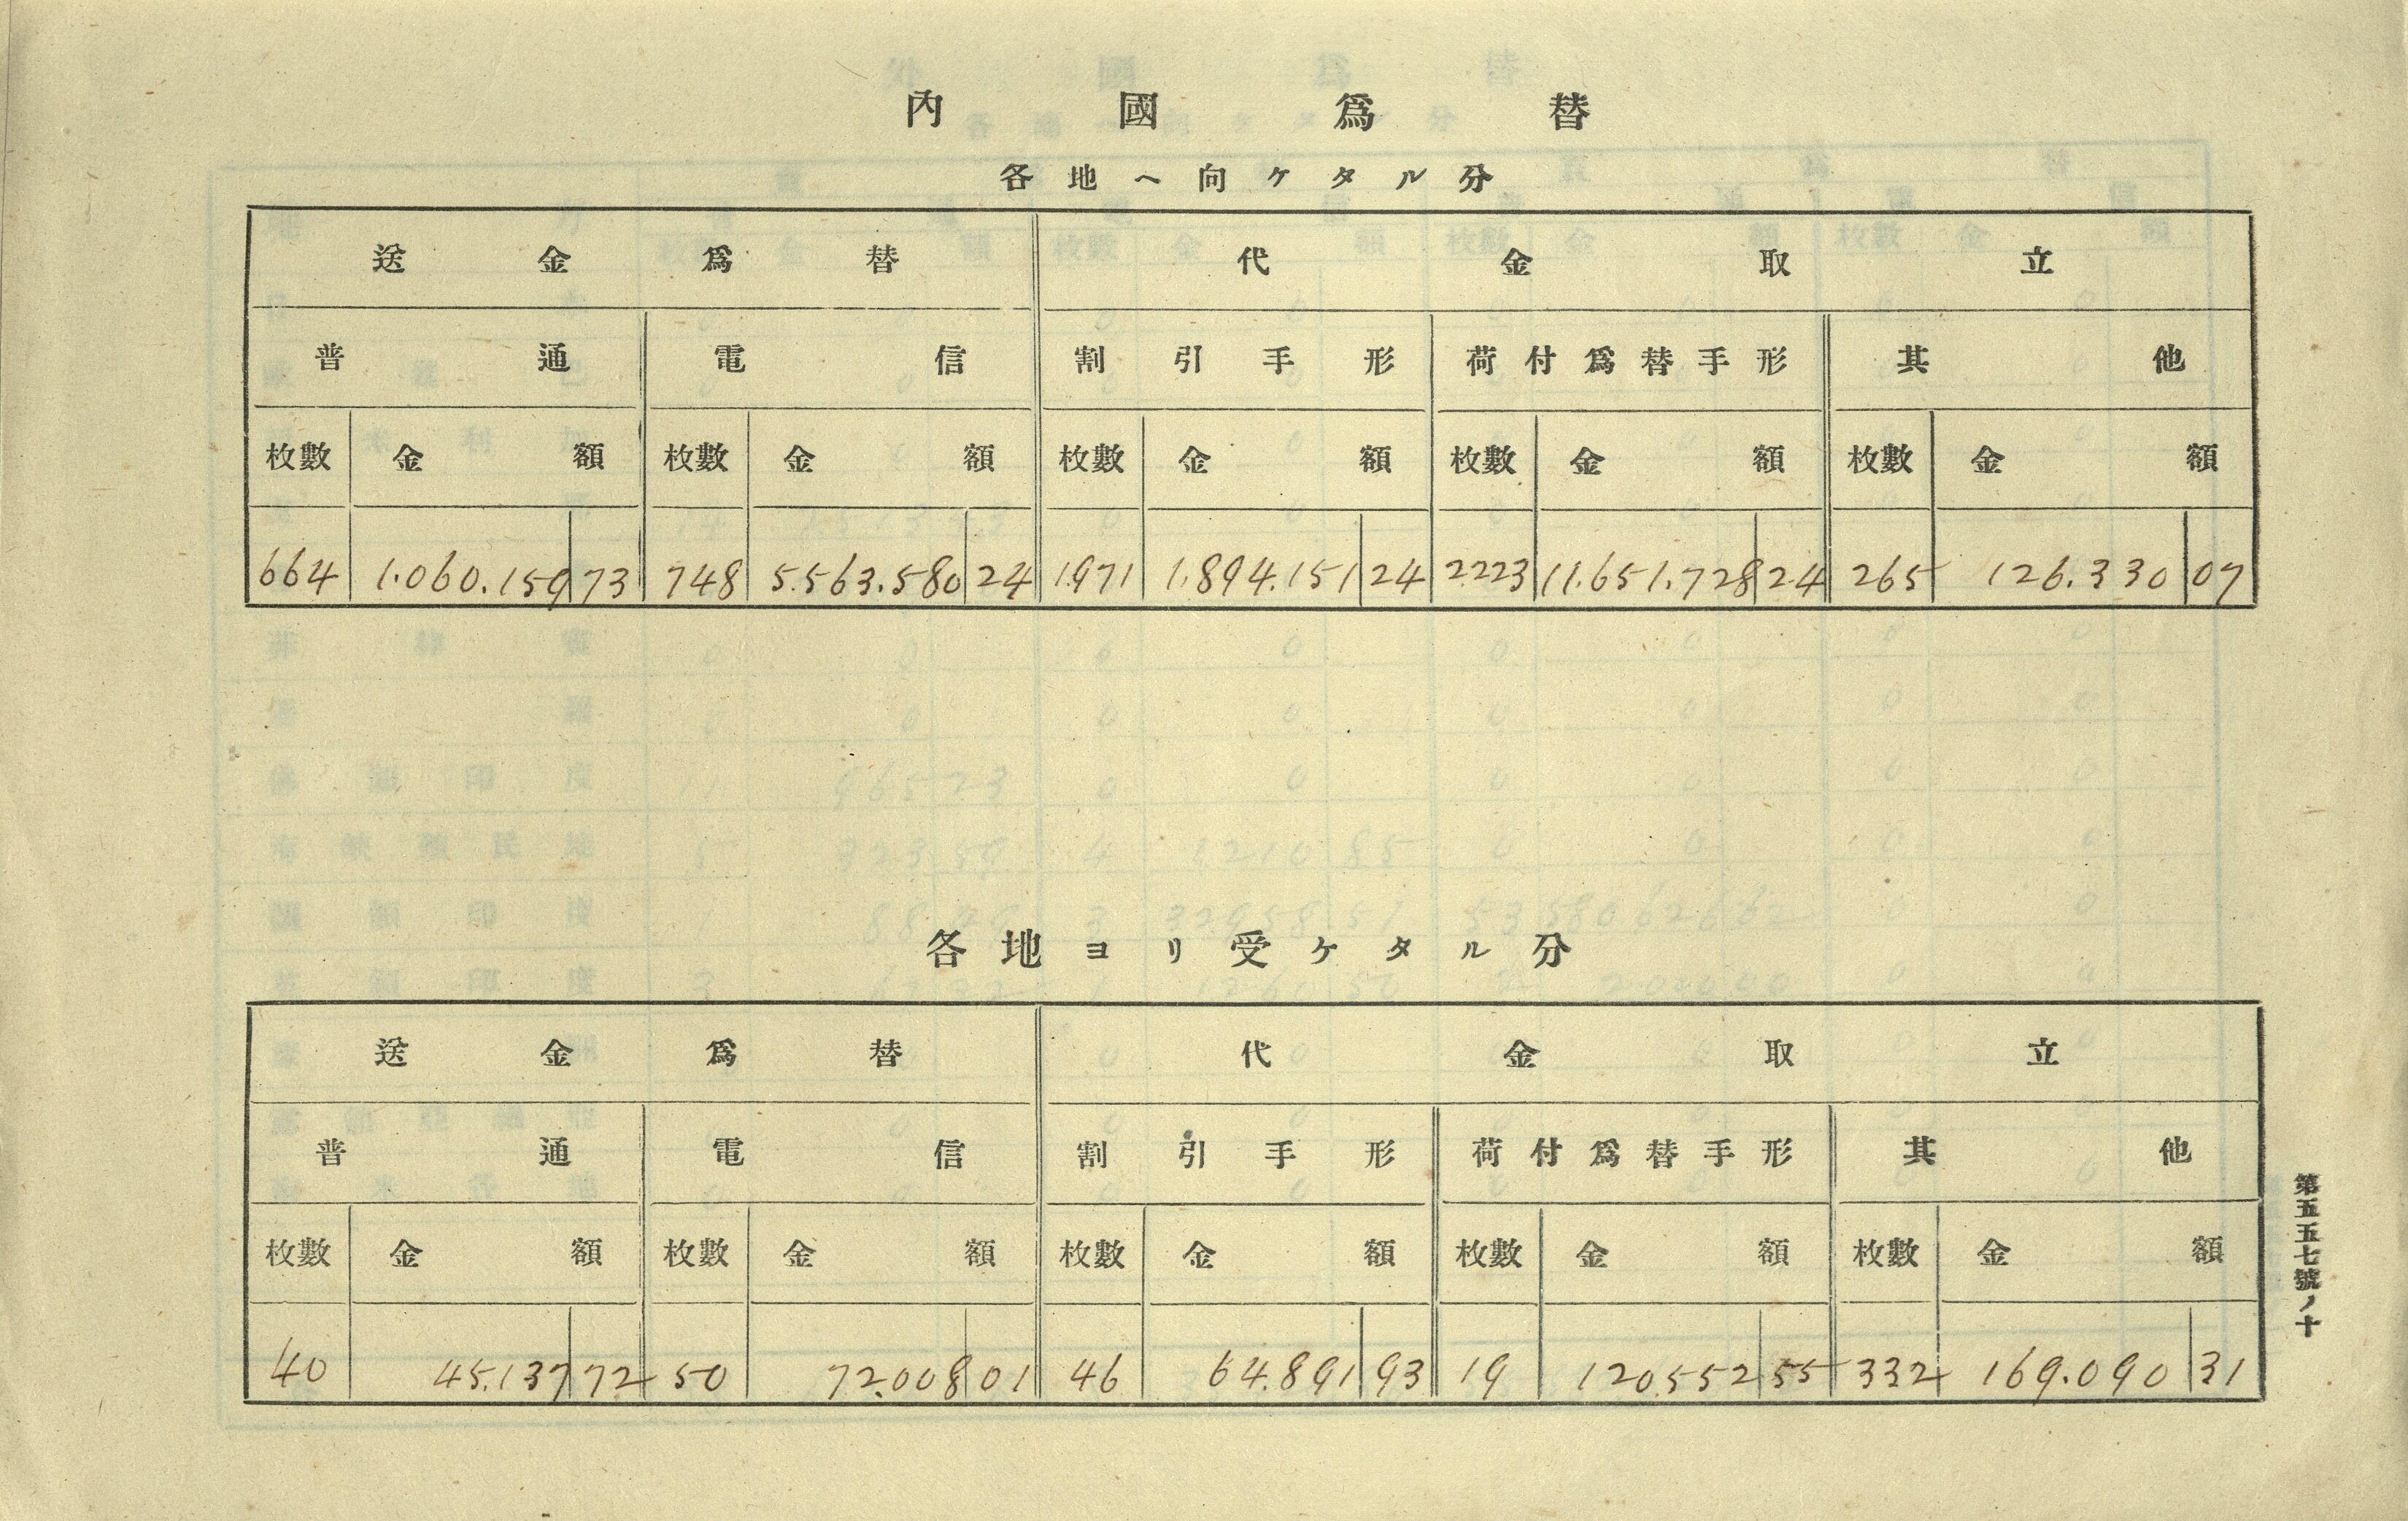 內國爲替
各地ヘ向ケタル分
送金爲替 代金取立
普通 電信 割引手形 荷付爲替手形 其他
枚數 金額 枚數 金額 枚數 金額 枚數 金額 枚數 金額
664 1.060.159 73 748 5.563.580 24 1.971 1.894.151 24 2.223 11.651.728 24 265 126.330 07
各地ヨリ受ケタル分
送金爲替 代金取立
普通 電信 割引手形 荷付爲替手形 其他
枚數 金額 枚數 金額 枚數 金額 枚數 金額 枚數 金額
40 45.137 72 50 72.008 01 46 64.891 93 19 120.552 55 332 169.090 31
第五五七號ノ十